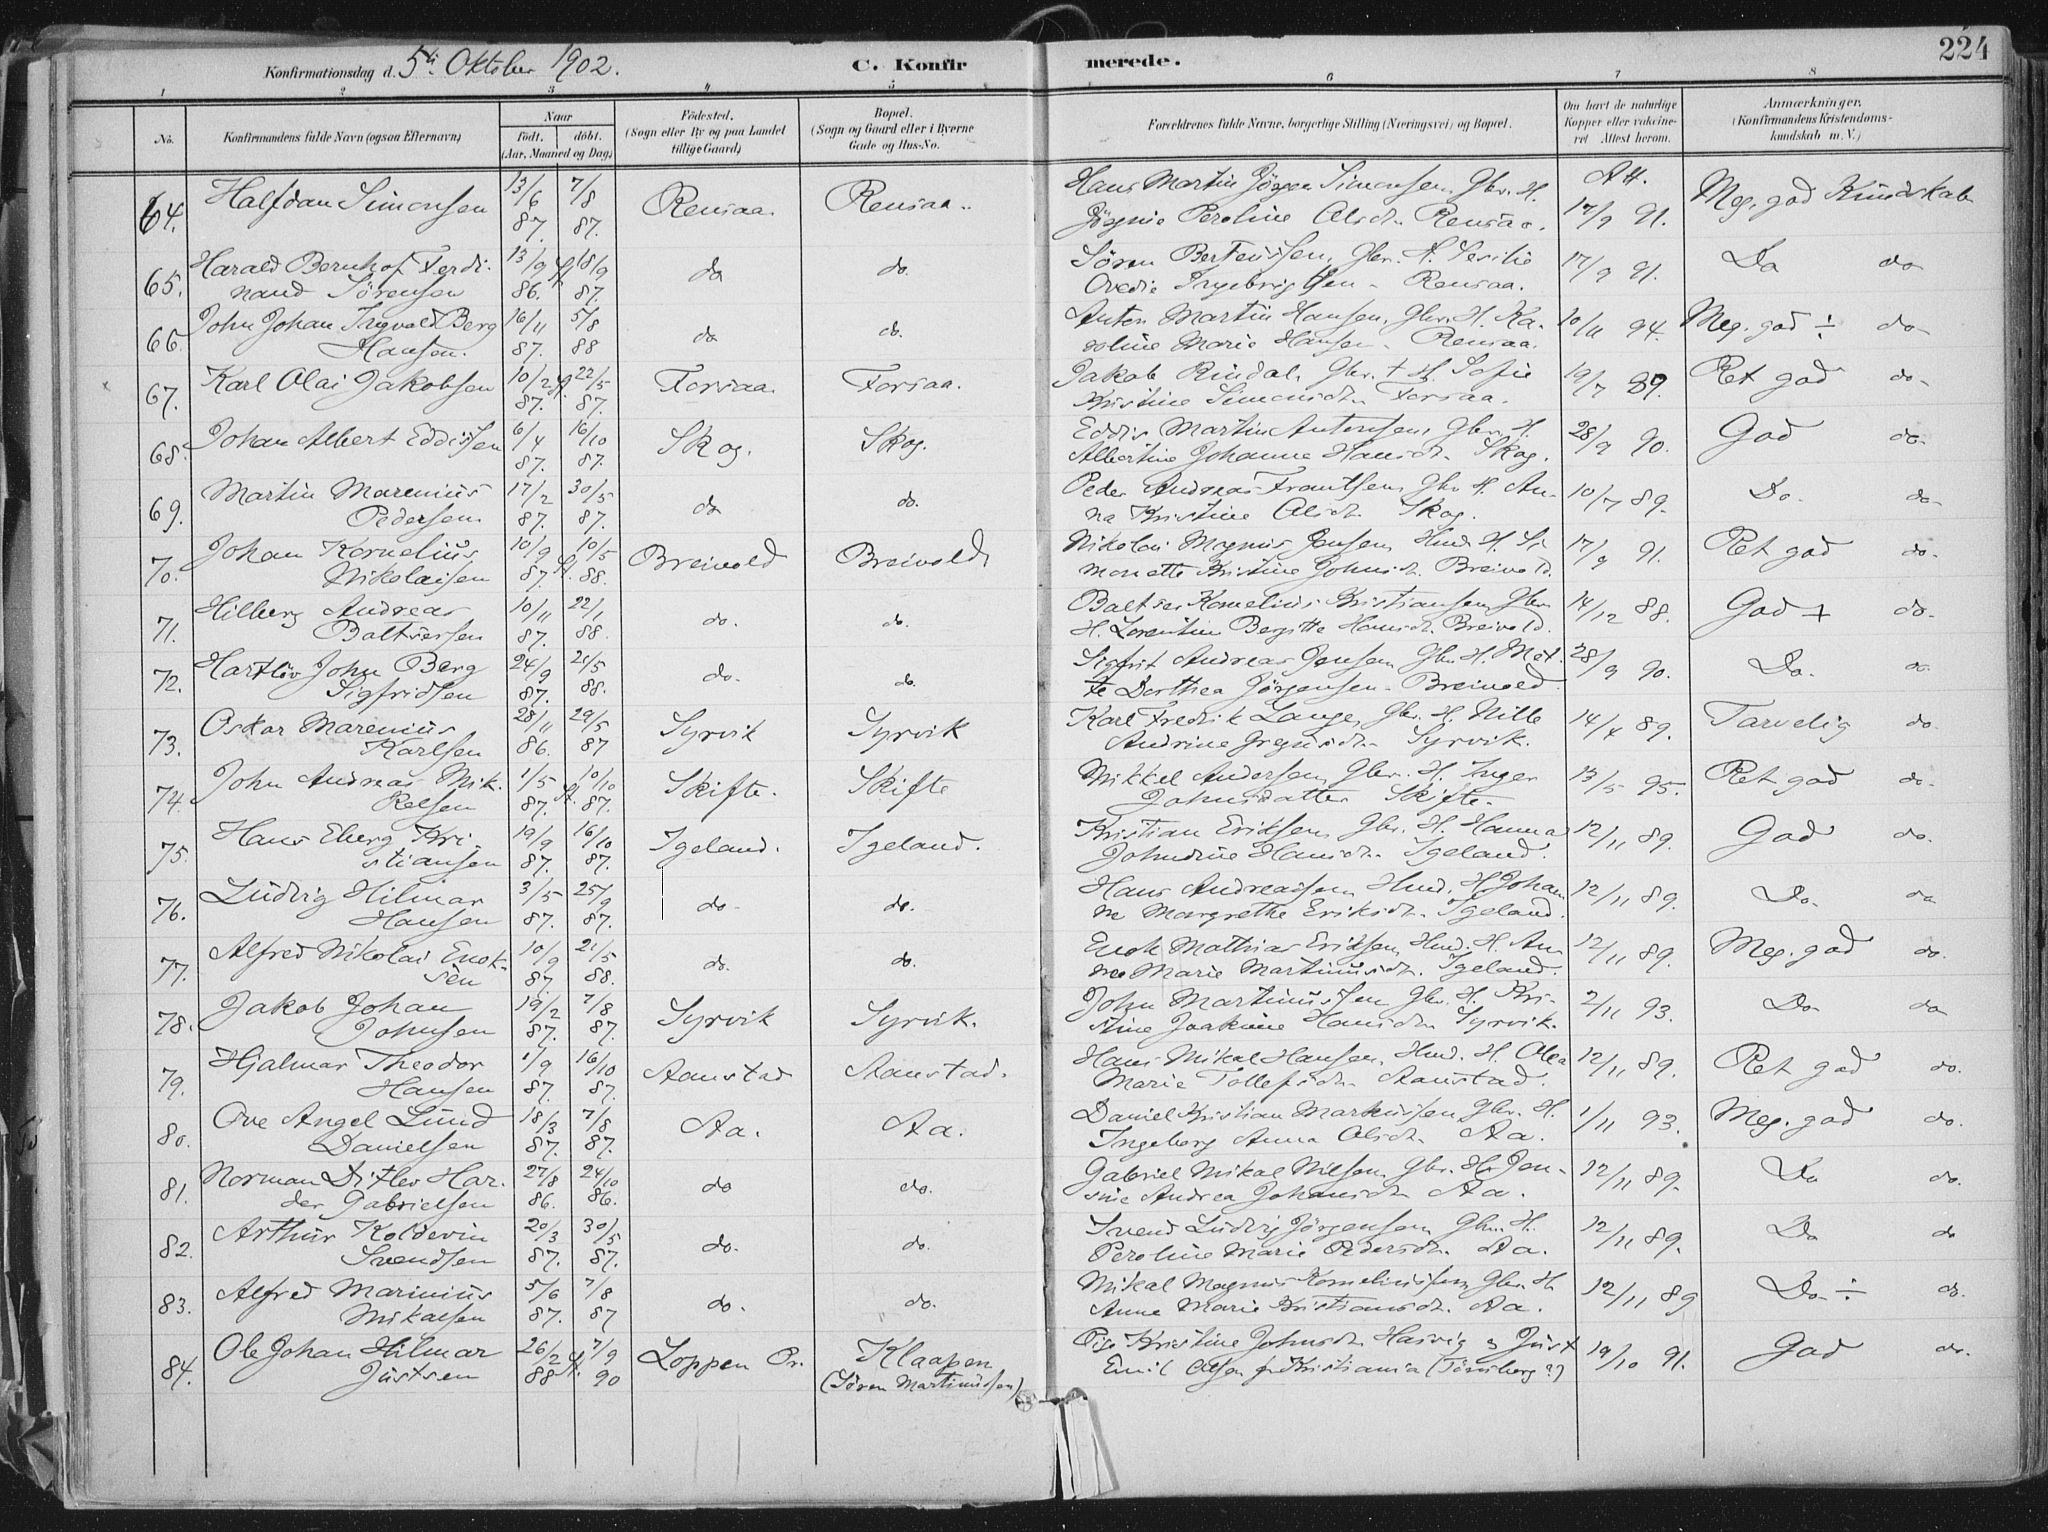 224
Konfirmationsdag d. 5te Oktober 1902. C. Konfirmerede.
1 2 3 4 5 6 7 8
No. Konfirmandens fulde Navn (ogsaa Efternavn) Naar født. døbt. (Aar, Maaned og Dag) Födested. (Sogn eller By og paa Landet tillige Gaard) Bopæl. (Sogn og Gaard eller i Byerne Gade og Hus-No. Forældrenes fulde Navne, borgerlige Stilling (Næringsvei) og Bopæl. Om havt de naturlige Kopper eller vakcineret Attest herom. Anmærkninger. (Konfirmandens Kristendomskundskab m. V.)
64. Halfdan Simonsen 13/6 87. 7/8 87. Rensaa. Rensaa. Hans Martin Jörgen Simonsen, Gbr. H. Att. Meg. god Kundskab
Peroline Olsdt. Rensaa. 17/9 91.
65. Harald Bernhof Ferdi- 13/9 86. 18/9 87. do do. Sören Berteussen, Gbr. H. Cesilie 17/9 91. Do do
nand Sörensen Ovedie Ingebrigtsen - Rensaa.
66. John Johan Ingvald Berg 16/11 87. 5/8 88 do do. Anton Martin Hansen, Gbr. H. Ka- 10/11 94. Meg. god ÷ do
Hansen. roline Marie Hansen - Rensaa.
67. Karl Olai Jakobsen 10/2 87. 22/5 87. Forsaa. Forsaa. Jakob Rindal, Gbr. + H. Sofie 19/7 89. Ret god do-
Kristine Simonsdt. Forsaa.
68. Johan Albert Eddissen 6/4 87. 16/10 87. Skog. Skog. Eddis Martin Antonsen, Gbr. H. 28/9 90. God do-
Albertine Johanne Hansdt. Skog.
69. Martin Marenius 17/2 87. 30/5 87. do do. Peder Andreas Frantsen, Gbr H. An- 10/7 89. Do. do-
Pedersen na Kristine Olsdt. Skog.
70. Johan Kornelius 10/9 87. 10/5 88. Breivold Breivold Nikolai Magnus Jensen, Hmd. H. Si- 17/9 91. Ret god do-
Nikolaisen monette Kristine Johnsdt. Breivold.
71. Hilberg Andreas 10/11 87. 22/1 88. do. do. Baltser Kornelius Kristiansen, Gbr. 14/12 88. God + do-
Baltsersen H. Lorentine Bergitte Hansdt. Breivold.
72. Hartlöv John Berg 24/9 87. 21/5 88. do- do. Sigfrit Andreas Jensen Gbr. H. Met- 28/9 90. Do. do
Sigfridsen te Dorthea Jörgensen - Breivold.
73. Oskar Marenius 28/11 86. 29/5 87 Syrvik Syrvik Karl Fredrik Lange, Gbr. H. Nille 14/4 89. Tarvelig do
Karlsen Andrine Gregusdt. Syrvik.
74. John Andreas Mik- 1/5 87. 10/10 87. Skifte. Skifte Mikkel Andersen, Gbr. H. Inger 13/5 95. Ret god do-
kelsen Johnsdatter Skifte.
75. Hans Eberg Kri- 19/9 87. 16/10 87. Igeland. Igeland. Kristian Eriksen, Gbr. H. Hanna 12/11 89. God do.
stiansen Johndine Hansdt. Igeland.
76. Ludvig Hilmar 3/5 87. 25/9 87. do- do. Hans Andreassen, Hmd. H. Johan- 12/11 89. Do. do
Hansen ne Margrethe Eriksdt. Igeland.
77. Alfred Nikolai Enok- 10/9 87. 21/5 88. do. do. Enok Mathias Eriksen, Hmd. H. An- 12/11 89. Meg. god do.
sen ne Marie Martinusdt. Igeland.
78. Jakob Johan 19/2 87. 7/8 87. Syrvik Syrvik. John Martinussen Gbr. H. Kri- 2/11 93. Do do
Johnsen stine Joakime Hansdt. Syrvik.
79. Hjalmar Theodor 1/9 87. 16/10 87. Aanstad Aanstad. Hans Mikal Hansen, Hmd. H. Olea 12/11 89. Ret god do.
Hansen Marie Tollefsdt. Aanstad.
80. Ove Angel Lund 18/3 87. 7/8 87. Aa. Aa. Daniel Kristian Markussen Gbr. H. 1/11 93. Meg. god do.
Danielsen Ingeborg Anna Olsdt. Aa.
81. Norman Ditlev Har- 27/8 86. 24/10 86. do do. Gabriel Mikal Nilsen, Gbr. H. Jen- 12/11 89. Do do.
der Gabrielsen sine Andrea Johansdt. Aa.
82. Arthur Koldevin 20/3 87. 30/5 87. do. do. Svend Ludvig Jörgensen, Gbr. H. 12/11 89. Do do
Svendsen Peroline Marie Pedersdt. Aa.
83. Alfred Marinius 5/6 87. 7/8 87 do. do. Mikal Magnus Korneliussen, Gbr. H. 12/11 89 Do ÷ do.
Mikalsen Anne Marie Kristiansdt. Aa.
84. Ole Johan Hilmar 26/2 88 7/9 90 Loppen Pr. Klaapen Kristine Johnsdt. Hasvig og Just 19/10 91. God do.
Justsen (Sören Martinussen) Emil Olsen fr Kristiania (Tönsberg?)